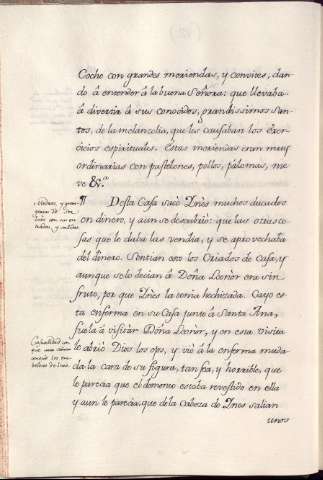 Coche con grandes meriendas, y convites, dan-
do á entender á la buena Señora: que llevaba
á divertir á sus conocidos, grandissimos San-
tos, de la melancolia, que les causaban los exer-
cicios espirituales. Estas meriendas eran muy
ordinarias con pastelones, pollos, palomas, nie-
ve &c.ª
¶ Desta Casa sacó Ines muchos ducados
en dinero, y aun se descubrió: que las otras co-
sas que le daba las vendia, y se aprovechaba
del dinero. Sentian esto los Criados de Casa, y
aunque se lo decian á Doña Leonor era sin
fruto, por que Ines la tenia hechizada. Cayo es-
ta enferma en su Casa junto á Santa Ana,
fuela á visitar Doña Leonor, y en esta visita
le abrió Dios los ojos, y vió á la enferma muda-
da la cara de su figura, tan fea, y horrible, que
le parecia que el demonio estaba revestido en ella
y aun le parecia, que de la cabeza de Ines salian
unos